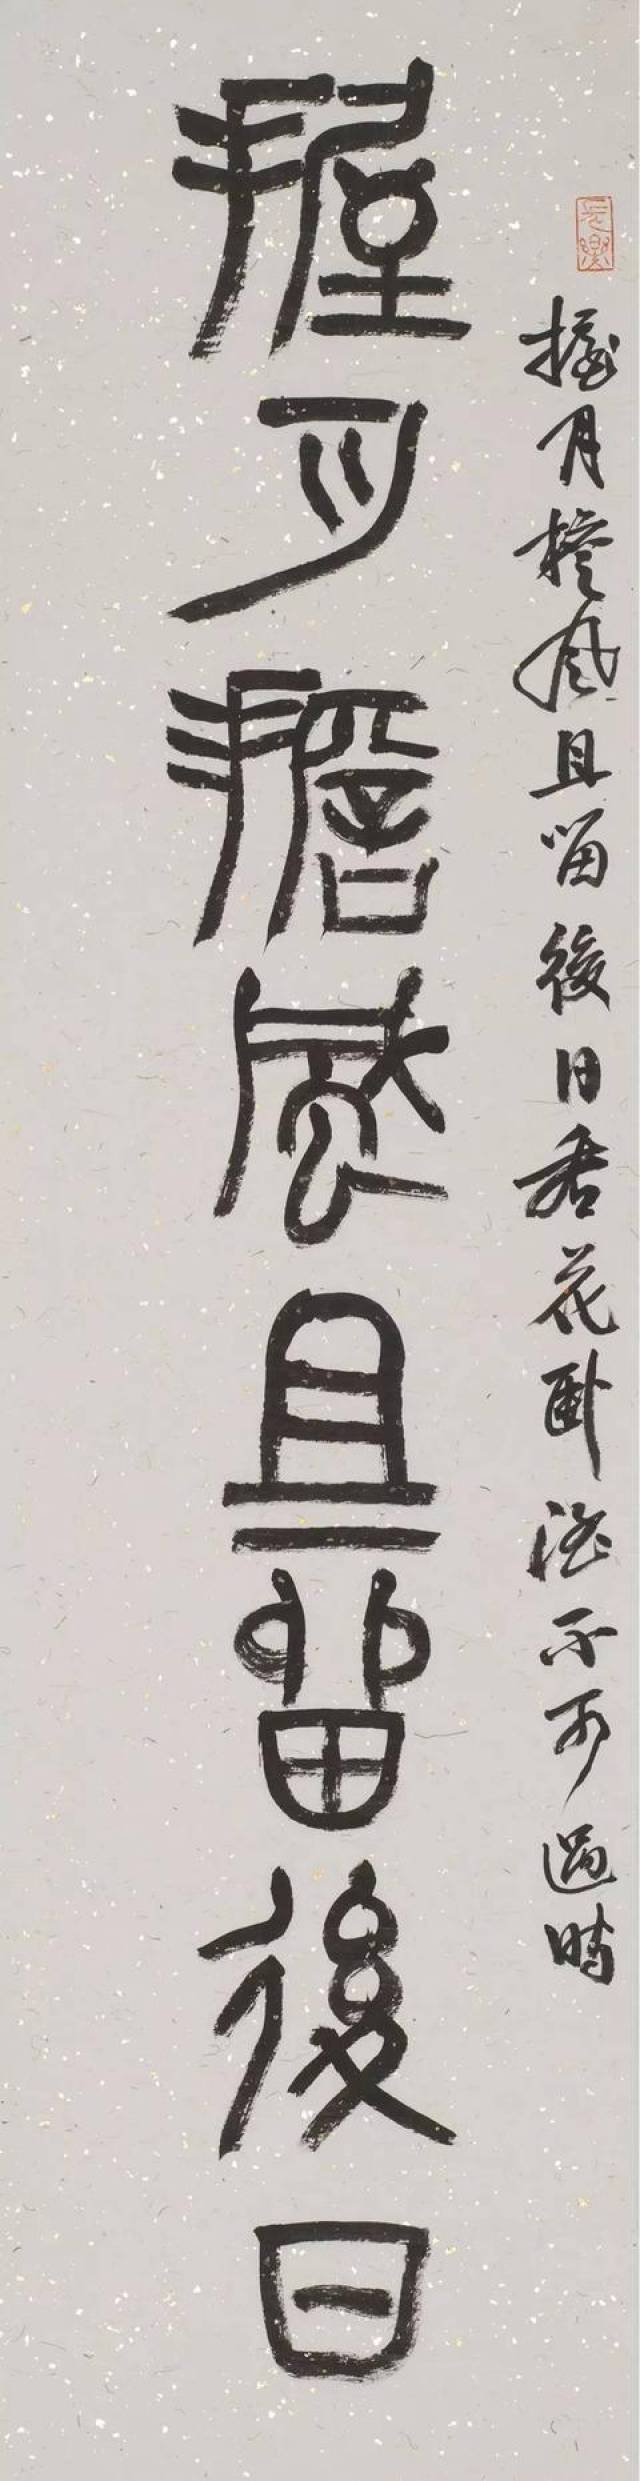 長樂
握月擔風且留後日吞花臥酒不可過時
握月擔風且留後日